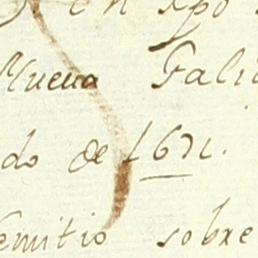 en Xpo
Nueva Gali
do de 1671.
emitio sobre